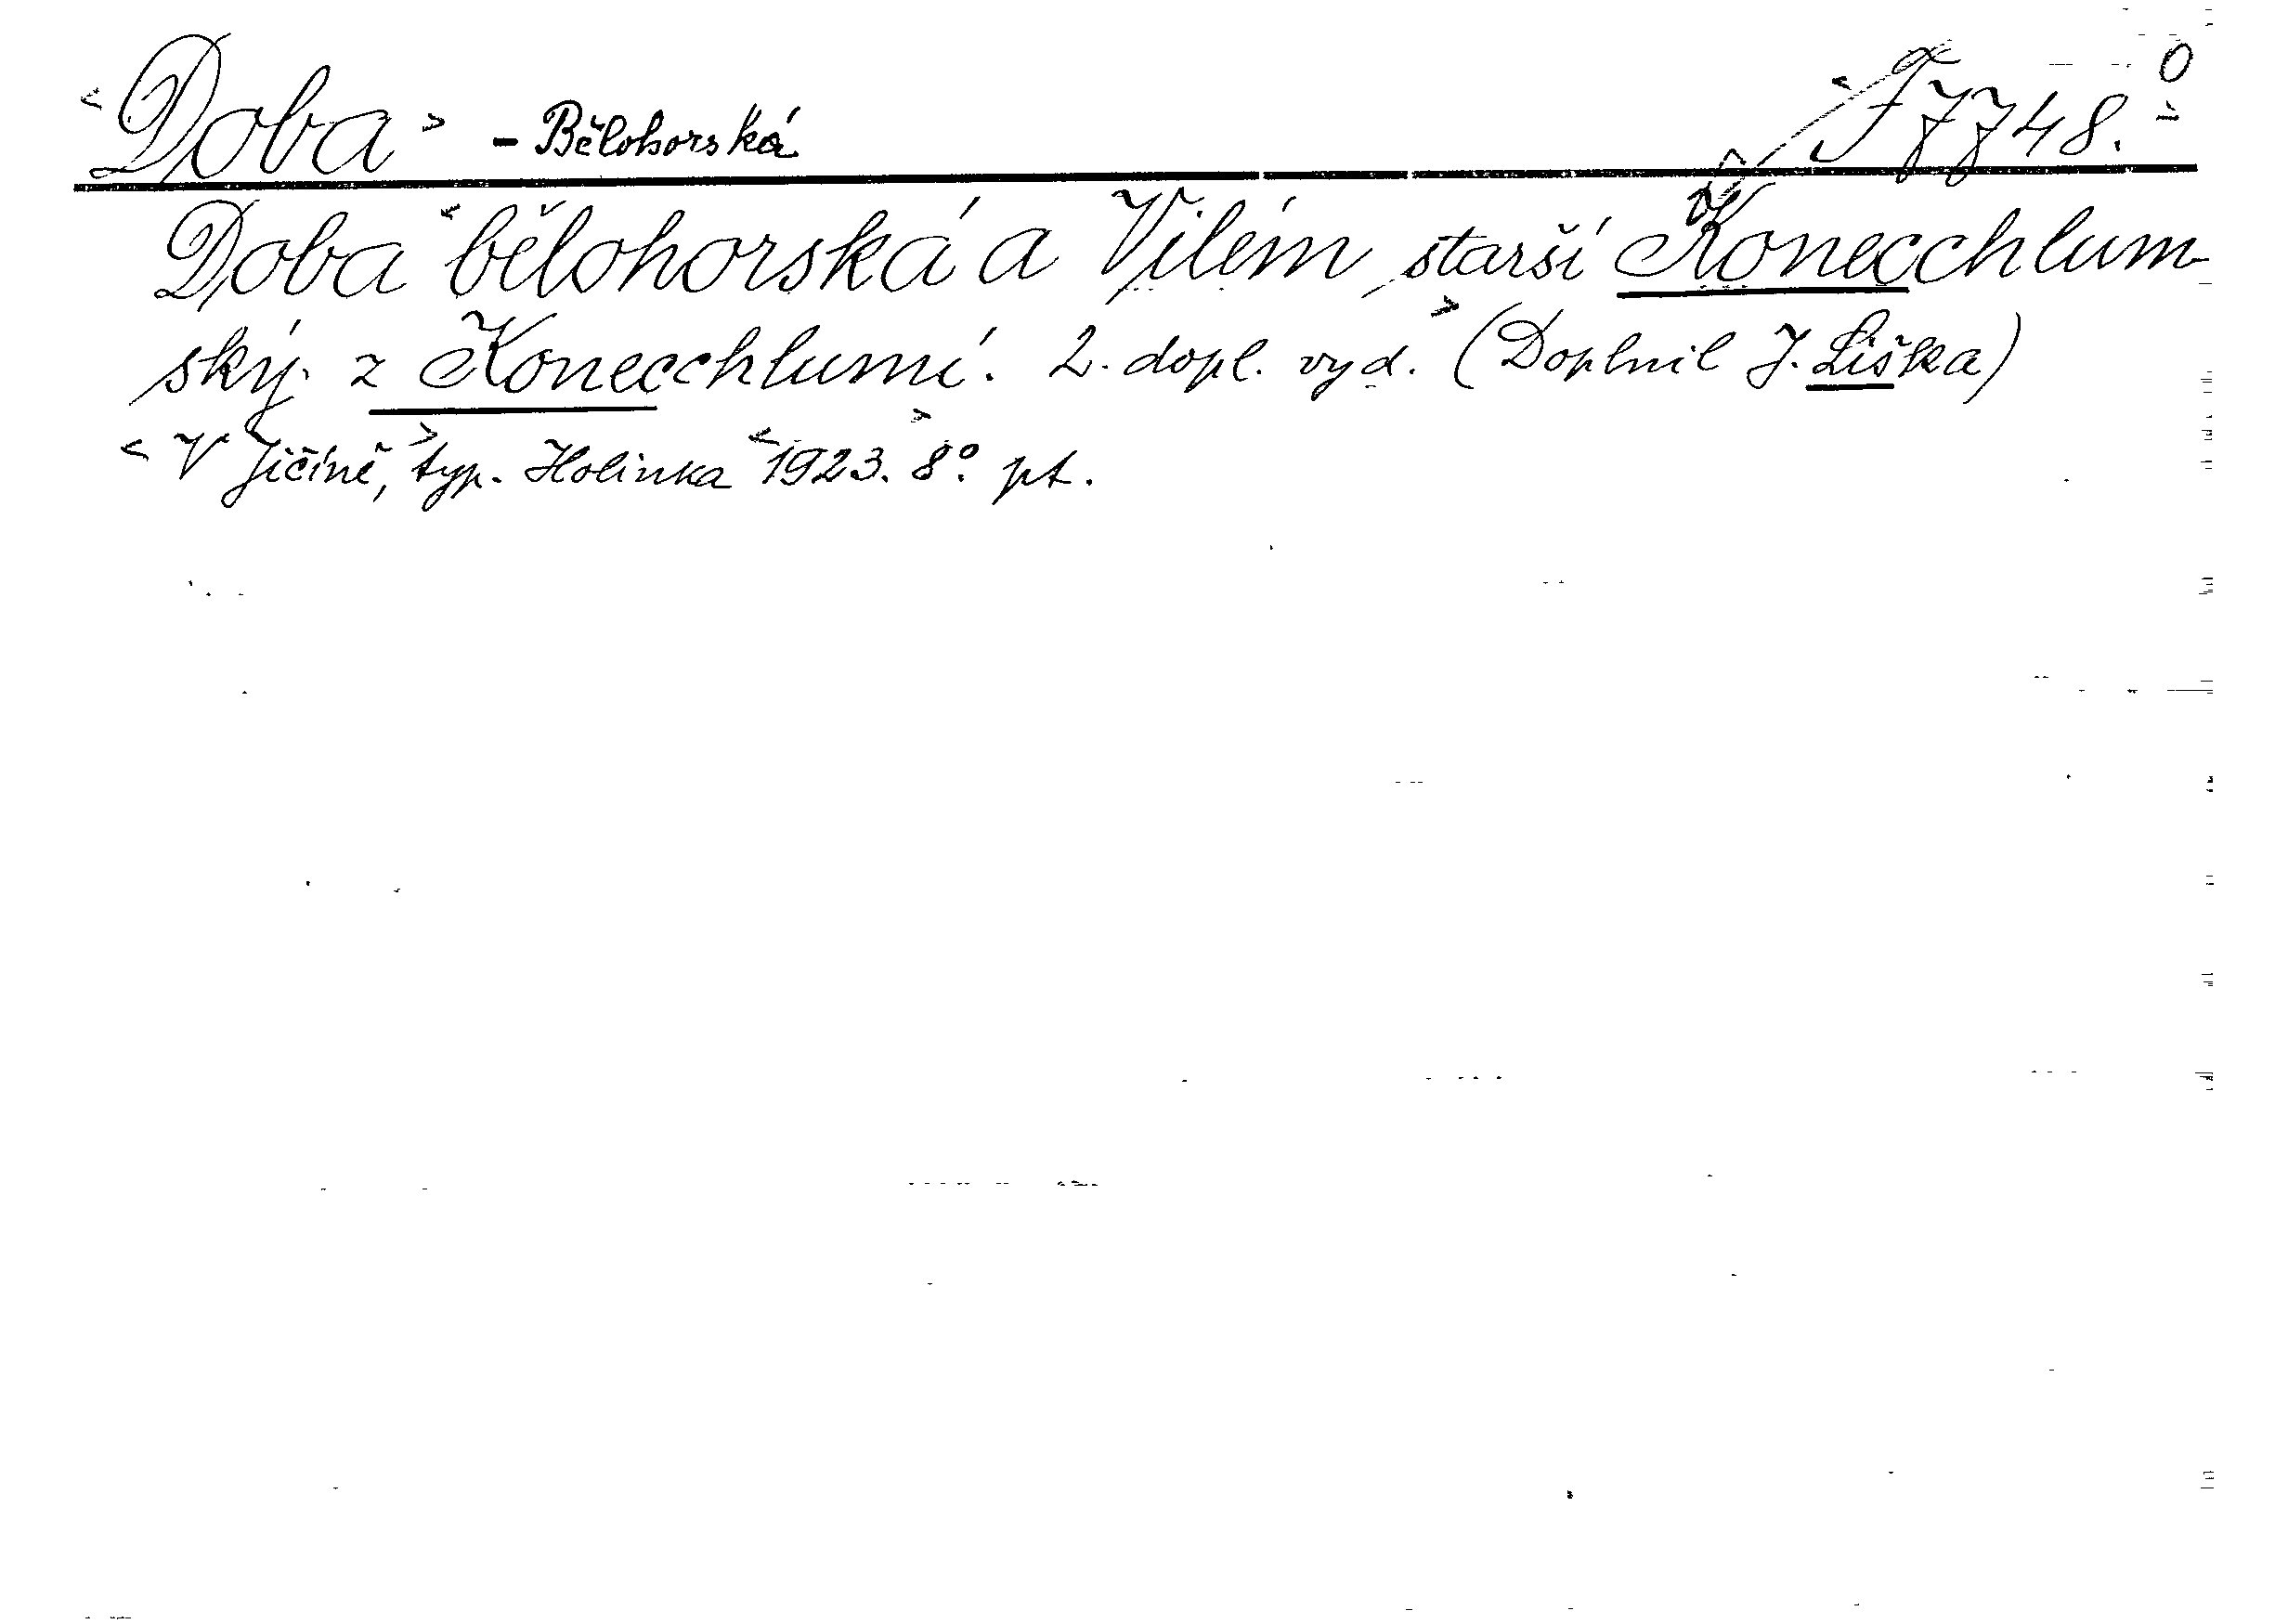 <Doba> - Bělohorská <F 7748.> 0
Doba <bělohorská a Vilém starší Konecchlum-
ský z Konecchlumí. 2. dopl. vyd.> (Doplnil J. Liška)
<V Jičíně,> typ. Holinka <1923.> 8° pt.